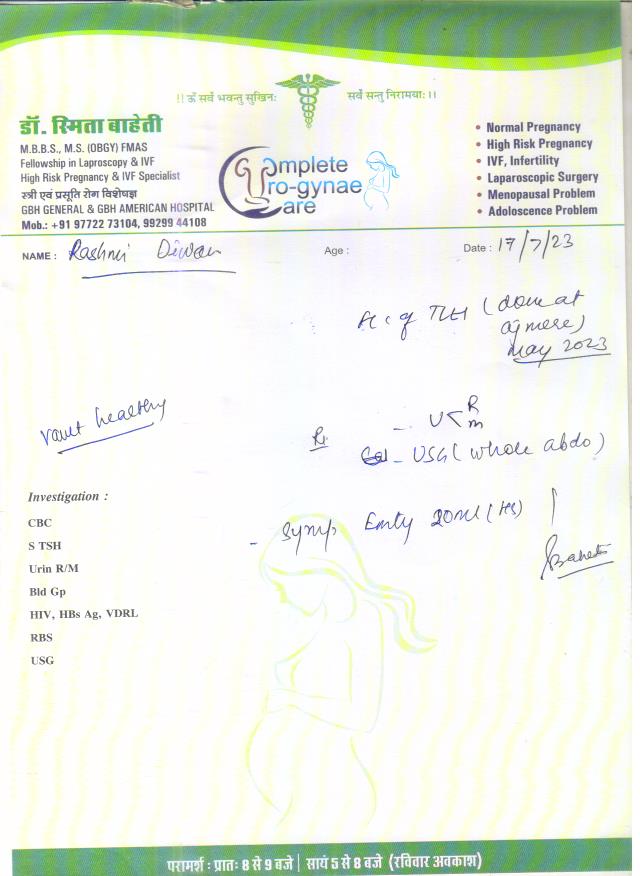 !! ॐ सर्वे भवन्तु सुखिनः सर्वे सन्तु निरामयाः ।।
डॉ. स्मिता बाहेती
M.B.B.S., M.S. (OBGY) FMAS
Fellowship in Laproscopy & IVF
High Risk Pregnancy & IVF Specialist
स्त्री एवं प्रसूति रोग विशेषज्ञ
GBH GENERAL & GBH AMERICAN HOSPITAL
Mob.: +91 97722 73104, 99299 44108
Complete
Uro-gynae
Care
• Normal Pregnancy
• High Risk Pregnancy
• IVF, Infertility
• Laparoscopic Surgery
• Menopausal Problem
• Adoloscence Problem
NAME : Rashmi Diwan Age : Date : 17/7/23
H/o of TLH (done at
ajmere)
May 2023
vault healthy
Rx - U< R
m
- USG (whole abdo)
- Syrup Emty 20ml (HS)
Investigation :
CBC
S TSH
Urin R/M
Bld Gp
HIV, HBs Ag, VDRL
RBS
USG
परामर्श : प्रातः 8 से 9 बजे | सायं 5 से 8 बजे (रविवार अवकाश)